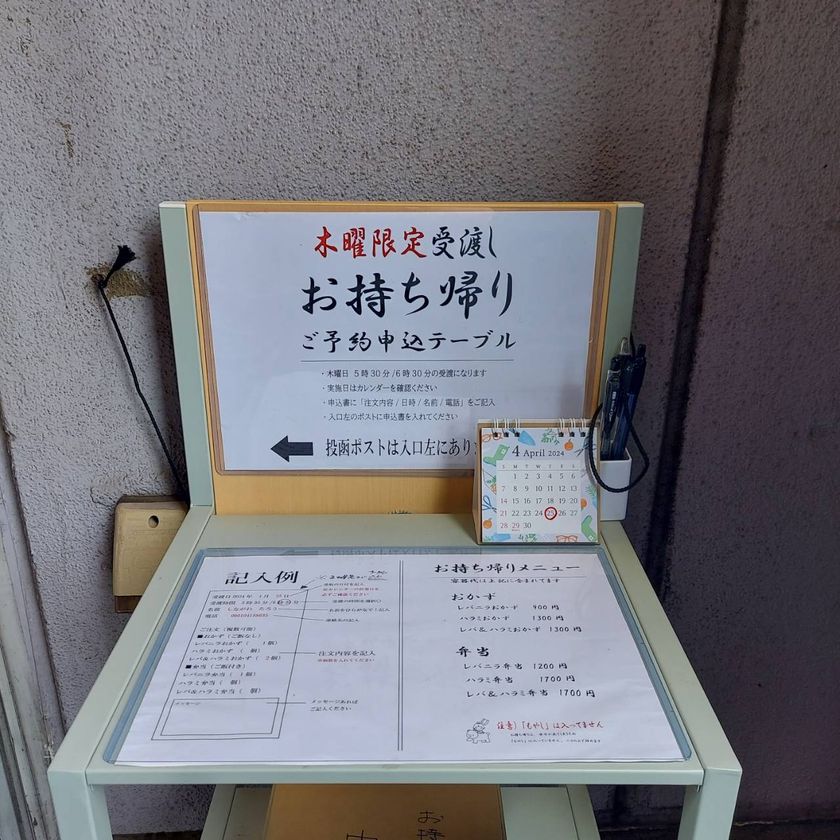 木曜限定受渡し
お持ち帰り
ご予約申込テーブル
・木曜日 5時30分/6時30分の受渡になります
・実施日はカレンダーを確認ください
・申込書に「注文内容/日時/名前/電話」をご記入
・入口左のポストに申込書を入れてください
投函ポストは入口左にあり
4 April 2024
S M T W T F S
1 2 3 4 5 6
7 8 9 10 11 12 13
14 15 16 17 18 19 20
21 22 23 24 25 26 27
28 29 30
記入例
受渡日 2024年 4月 25日
受渡時間 5時30分/6時30分
名前 しながわ たろう
電話
ご注文（複数可能）
■おかず（ご飯なし）
レバニラおかず（ 1個）
ハラミおかず（ 個）
レバ&ハラミおかず（ 2個）
■弁当（ご飯付き）
レバニラ弁当（ 1個）
ハラミ弁当（ 個）
レバ&ハラミ弁当（ 個）
メッセージ
必ずご確認ください
受渡の時間を選択○
お名前ひらがなでご記入
連絡先の記入
注文内容を記入
メッセージあれば
ご記入ください
お持ち帰りメニュー
容器代は上記に含まれてます
おかず
レバニラおかず 900円
ハラミおかず 1300円
レバ&ハラミおかず 1300円
弁当
レバニラ弁当 1200円
ハラミ弁当 1700円
レバ&ハラミ弁当 1700円
注意）「もやし」は入ってません
お持